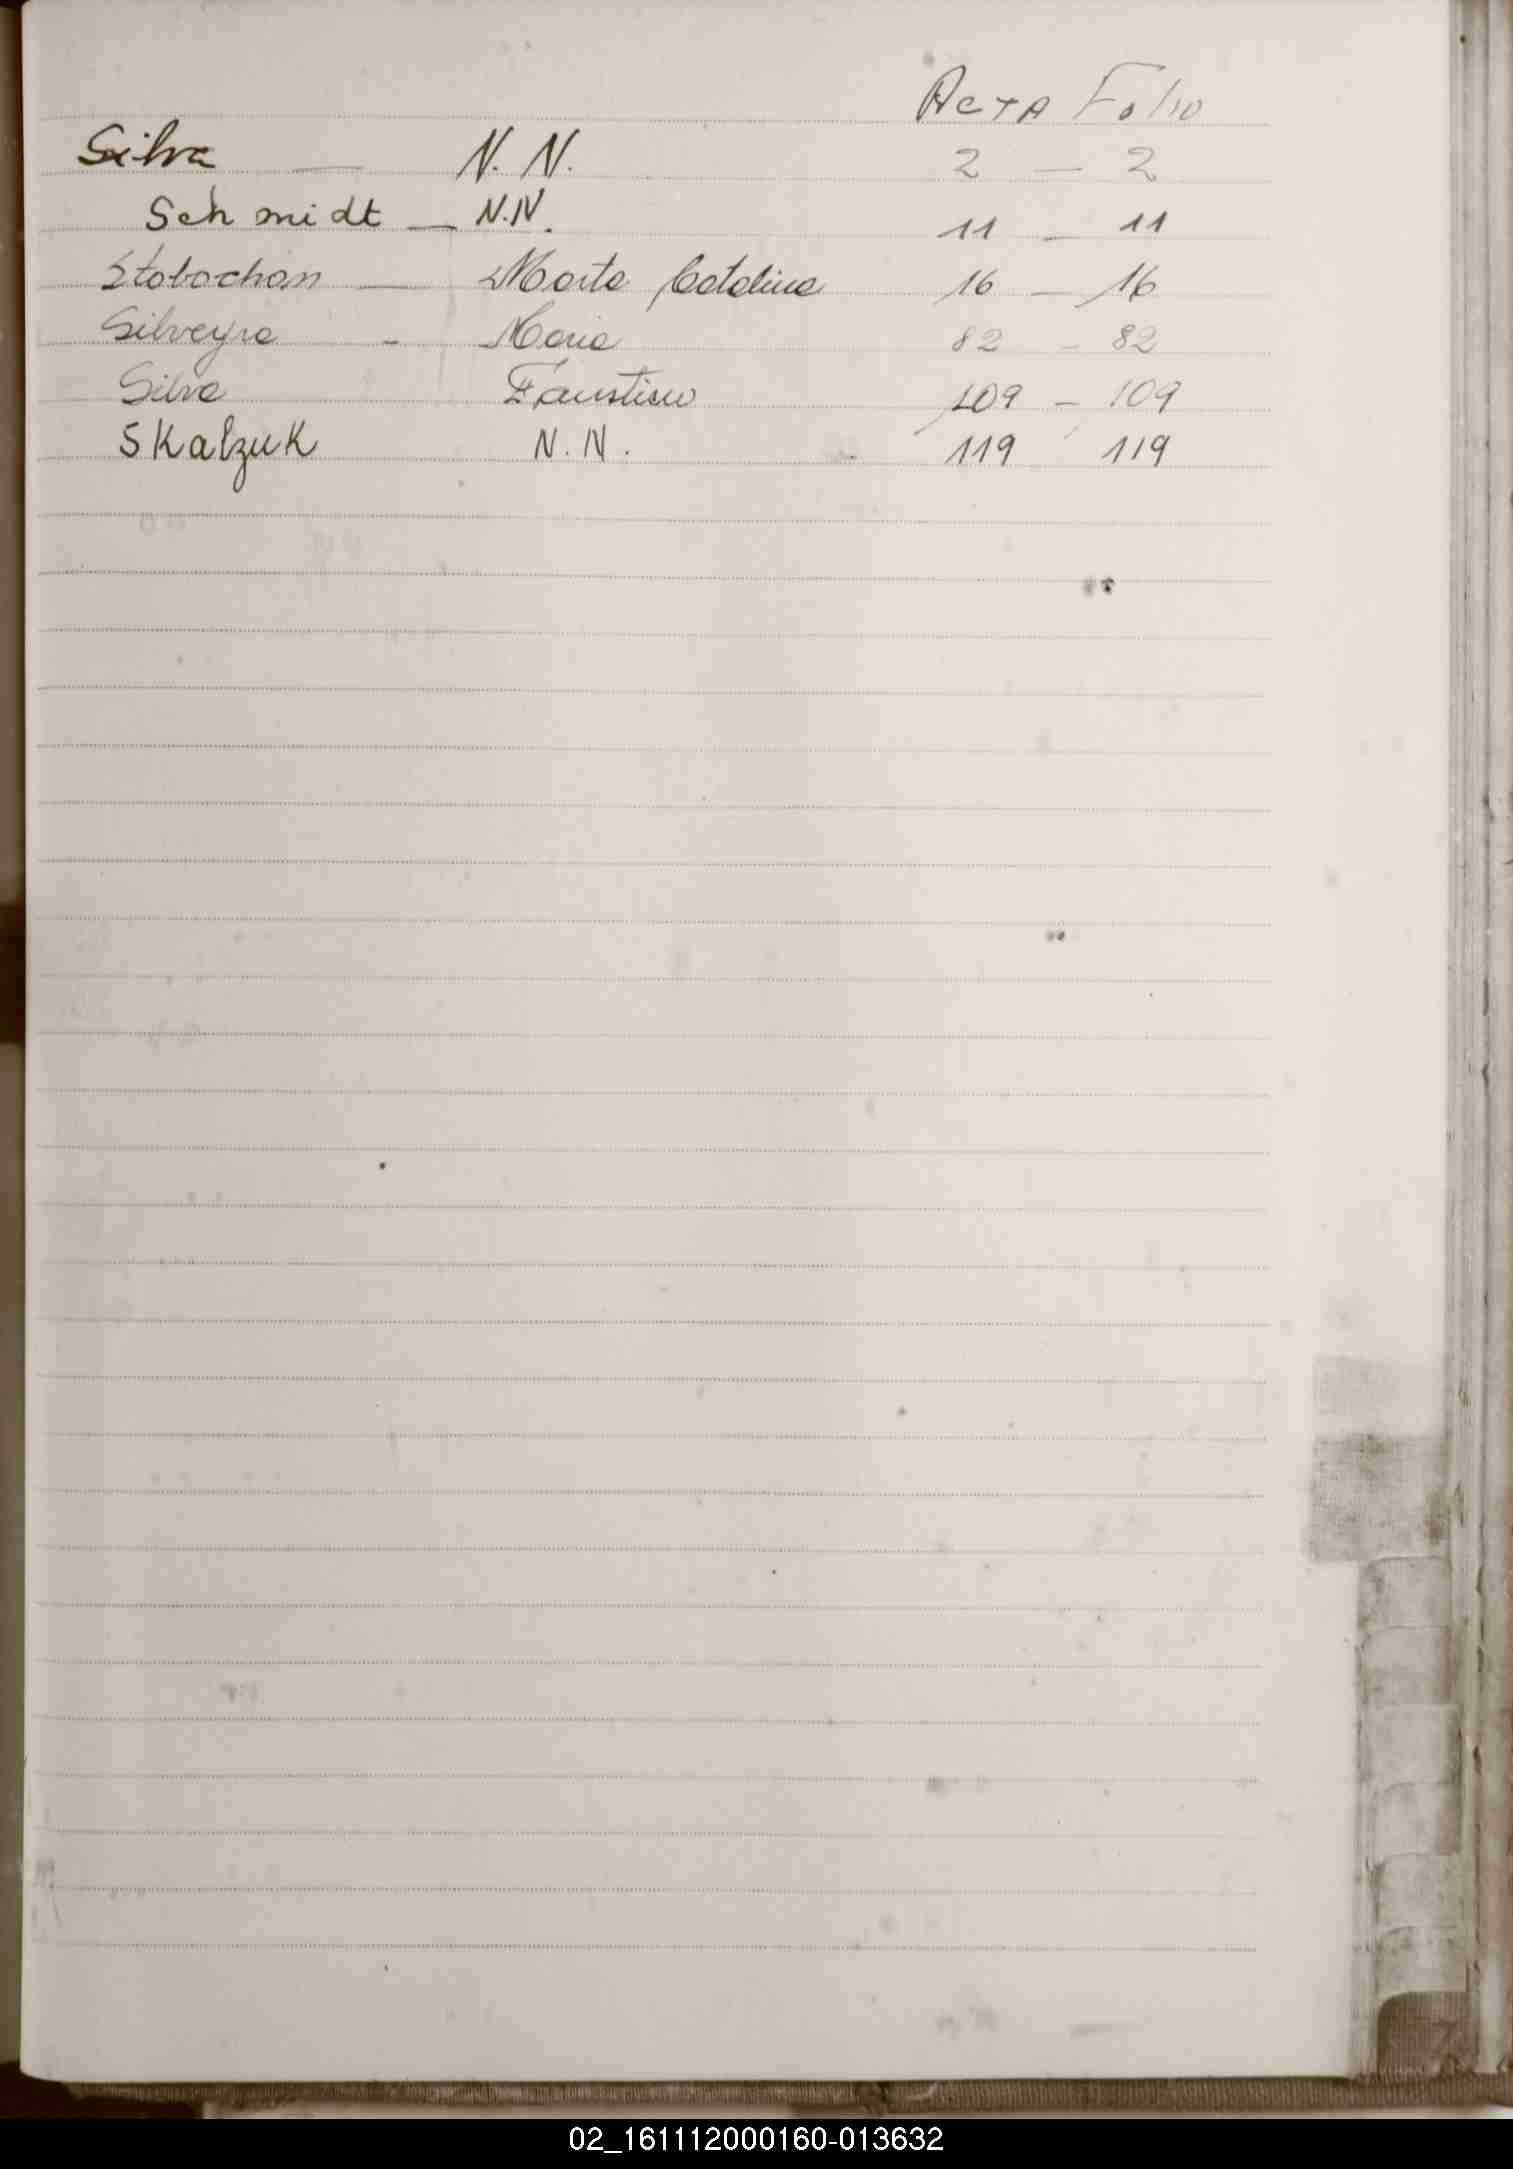 Acta Folio
Silva — N. N. 2 — 2
Schmidt — N.N. 11 — 11
Stobochan — Marta Catalina 16 — 16
Silveyra - Maria 82 - 82
Silva Faustino 109 - 109
SKalzuk N. N. 119 119
02_161112000160-013632